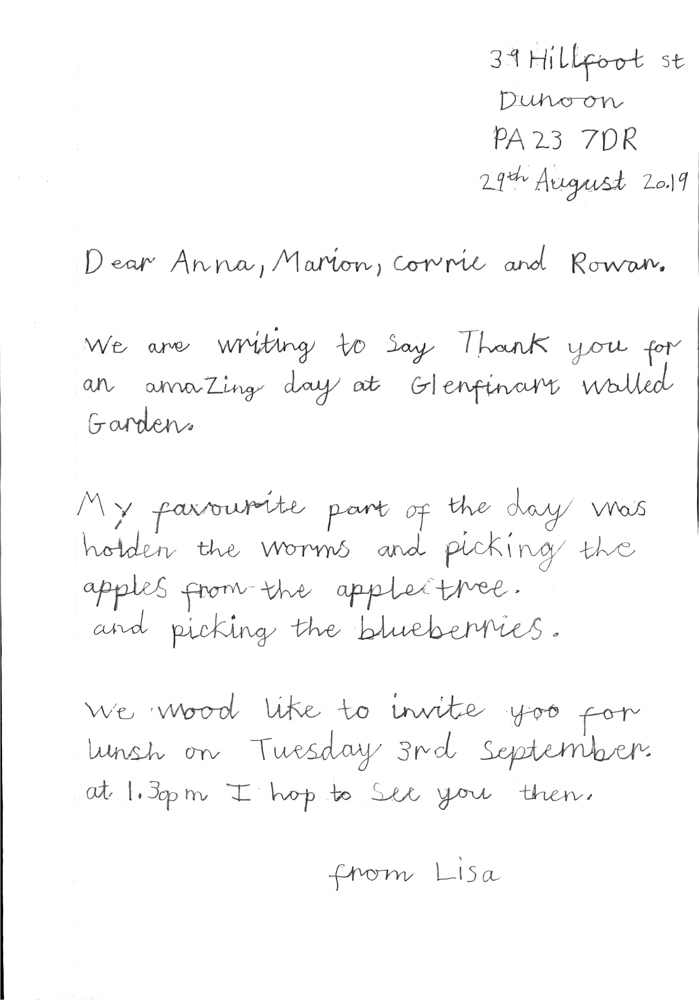 39 Hillfoot st
Dunoon
PA 23 7DR
29th August 2019
Dear Anna, Marion, Corrie and Rowan.
We are writing to say Thank you for
an amaZing day at Glenfinart Walled
Garden.
My favourite part of the day was
holden the worms and picking the
apples from the apple tree.
and picking the blueberries.
We wood like to invite yoo for
lunsh on Tuesday 3rd September.
at 1.30pm I hop to see you then.
from Lisa